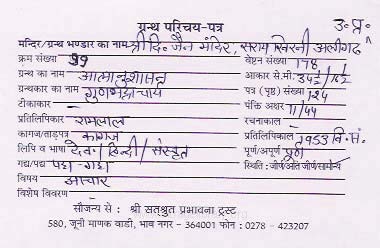 ग्रन्थ परिचय-पत्र
उ० प्र०
मन्दिर/ग्रन्थ भण्डार का नाम श्री दि. जैन मंदिर, सराय खिरनी अलीगढ़
क्रम संख्या 99 वेष्टन संख्या 178
ग्रन्थ का नाम आत्मानुशासन आकार से.मी. 34½/16½
ग्रन्थकार का नाम गुणभद्राचार्य पत्र (पृष्ठ) संख्या 124
टीकाकार – पंक्ति अक्षर 11/44
प्रतिलिपिकार रामलाल रचनाकाल –
कागज/ताड़पत्र कागज प्रतिलिपिकाल 1953 वि. सं.
लिपि व भाषा दे.ना./हिन्दी/संस्कृत पूर्ण/अपूर्ण पूर्ण
गद्य/पद्य पद्य-गद्य स्थिति : जीर्ण/अति जीर्ण/सामान्य
विषय आचार
विशेष विवरण –
सौजन्य से : श्री सत्श्रुत प्रभावना ट्रस्ट
580, जूनी माणक वाडी, भाव नगर - 364001 फोन : 0278 - 423207